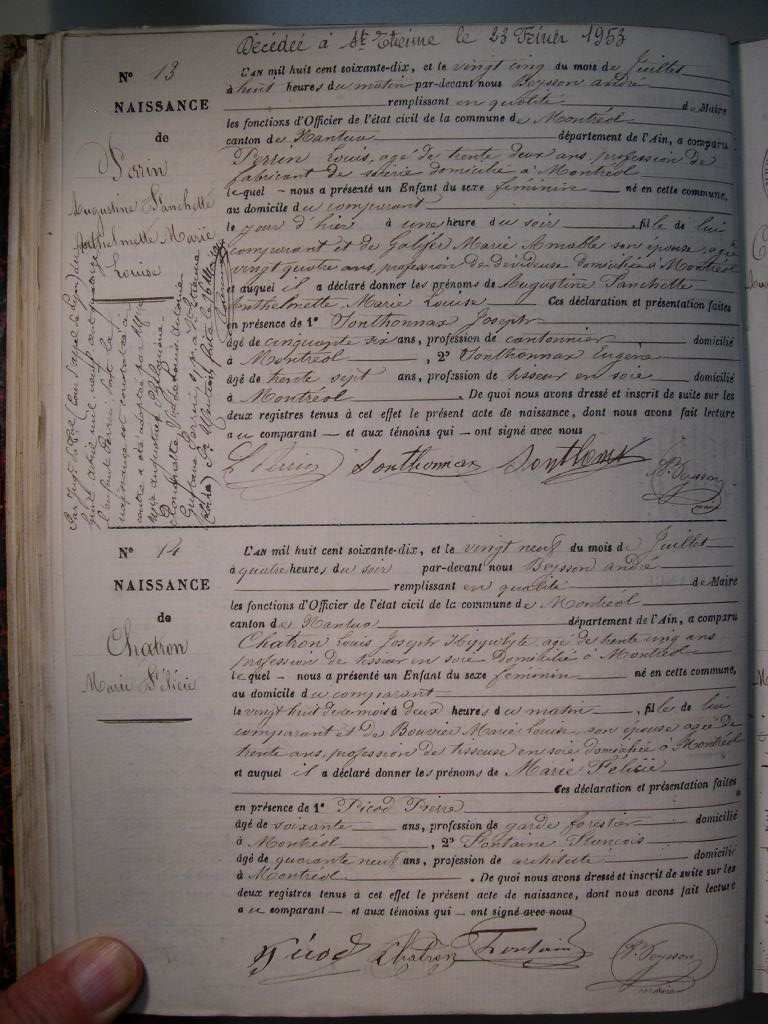 Décédée à St Etienne le 23 Février 1953
N° 13
NAISSANCE
de
Perrin
Augustine Fanchette
Anthelmette Marie
Louise
L'AN mil huit cent soixante-dix, et le vingt cinq du mois de Juillet
à huit heures du matin par-devant nous Beysson André
remplissant en qualité de Maire
les fonctions d'Officier de l'état civil de la commune de Montréal
canton de Nantua département de l'Ain, a comparu
Perrin Louis, agé de trente deux ans, profession de
fabricant de soierie domicilié à Montréal
lequel - nous a présenté un Enfant du sexe feminin né en cette commune,
au domicile du comparant
le jour d'hier à une heure du soir, fille de lui
comparant et de Marie Amable son épouse agée
vingt quatre ans, profession de dévideuse domiciliée à Montréal
et auquel il a déclaré donner les prénoms de Augustine Fanchette
Anthelmette Marie Louise Ces déclaration et présentation faites
en présence de 1° Sonthonnax Joseph
âgé de cinquante six ans, profession de cantonnier domicilié
à Montréal, 2° Sonthonnax Eugène
âgé de trente sept ans, profession de tisseur en soie domicilié
à Montréal. De quoi nous avons dressé et inscrit de suite sur les
deux registres tenus à cet effet le présent acte de naissance, dont nous avons fait lecture
au comparant — et aux témoins qui — ont signé avec nous
L Perrin Sonthonnax Sonthonax A. Beysson
N° 14
NAISSANCE
de
Chatron
Marie Félicie
L'AN mil huit cent soixante-dix, et le vingt neuf du mois de Juillet
à quatre heures du soir par-devant nous Beysson André
remplissant en qualité de Maire
les fonctions d'Officier de l'état civil de la commune de Montréal
canton de Nantua département de l'Ain, a comparu
Chatron Louis Joseph Hyppolyte agé de trente cinq ans
profession de tisseur en soie Domicilié à Montréal
lequel - nous a présenté un Enfant du sexe feminin né en cette commune,
au domicile du comparant
le vingt huit de ce mois à deux heures du matin, fille de lui
comparant et de Bouvier Marie Louise, son épouse agée de
trente ans, profession de tisseuse en soie domiciliée à Montréal
et auquel il a déclaré donner les prénoms de Marie Félicie
Ces déclaration et présentation faites
en présence de 1° Picod Pierre
âgé de soixante ans, profession de garde forestier domicilié
à Montréal, 2° Fontaine François
âgé de quarante neuf ans, profession de architecte domicilié
à Montréal. De quoi nous avons dressé et inscrit de suite sur les
deux registres tenus à cet effet le présent acte de naissance, dont nous avons fait lecture
au comparant — et aux témoins qui — ont signé avec nous
Picod Chatron Fontaine A. Beysson